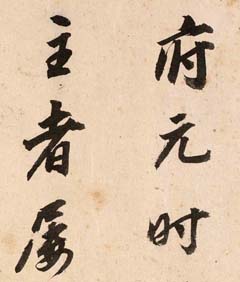 府元时
主者屡